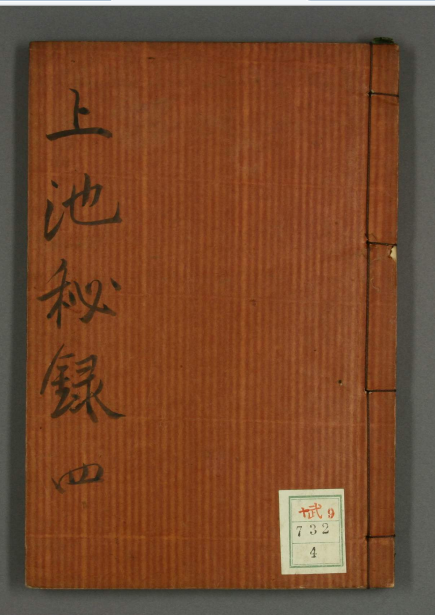 上池秘録 四
武9
732
4